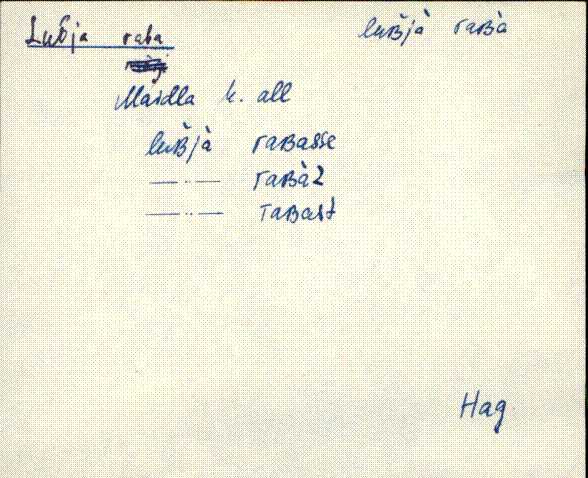 Lubja raba
luʙ̆jà raʙà
Maidla k. all
luʙ̆jà raʙasse
—··— raʙàz
—··— raʙast
Hag